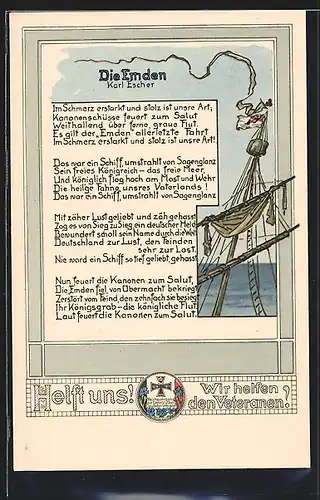 Die Emden
Karl Escher
Im Schmerz erstarkt und stolz ist unsre Art;
Kanonenschüsse feuert zum Salut
Weithallend über ferne, graue Flut.
Es gilt der „Emden" allerletzte Fahrt
Im Schmerz erstarkt und stolz ist unsre Art!
Das war ein Schiff, umstrahlt von Sagenglanz
Sein freies Königreich – das freie Meer,
Und königlich flog hoch am Mast und Wehr
Die heilige Fahne unsres Vaterlands!
Das war ein Schiff, umstrahlt von Sagenglanz
Mit zäher Lust geliebt und zäh gehasst
Zog es von Sieg zu Sieg ein deutscher Held
Bewundert scholl sein Name durch die Welt
Deutschland zur Lust, den Feinden
sehr zur Last.
Nie ward ein Schiff so tief geliebt, gehasst
Nun feuert die Kanonen zum Salut,
Die Emden fiel, von Übermacht bekriegt
Zerstört vom Feind, den zehnfach sie besiegt
Ihr Königsgrab – die königliche Flut
Laut feuert die Kanonen zum Salut.
Helft uns!
Wir helfen
den Veteranen!